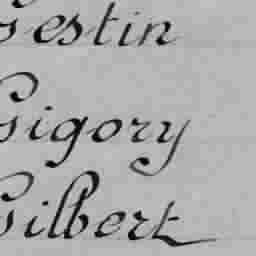 Gestin
Gigory
Gilbert